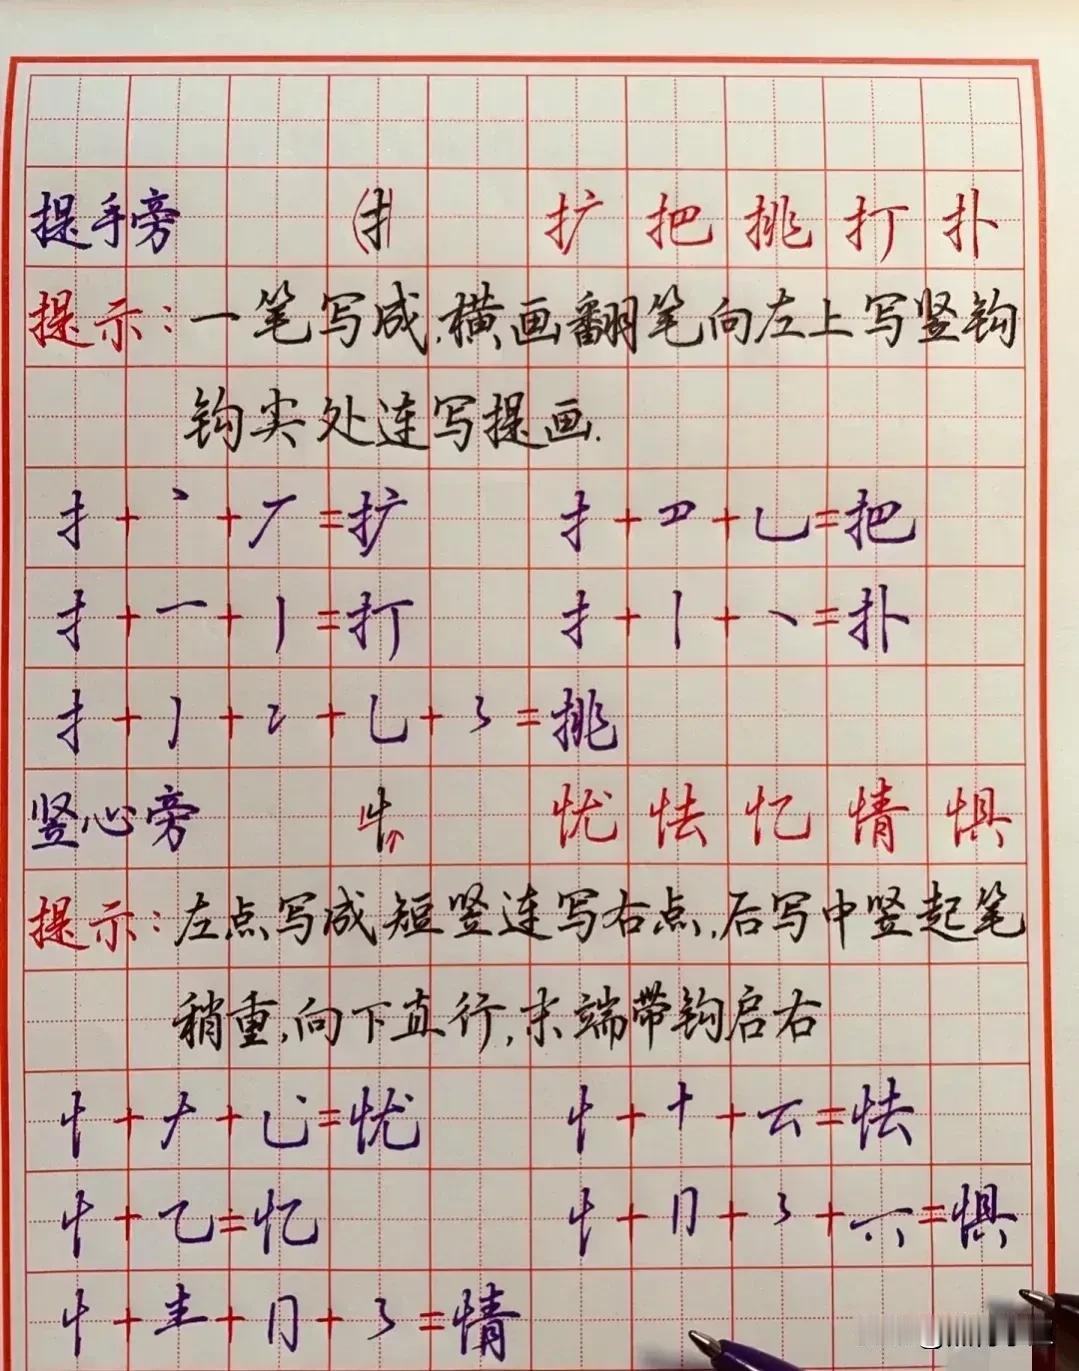 提手旁 扌 扩 把 挑 打 扑
提示:一笔写成,横画翻笔向左上写竖钩
钩尖处连写提画.
扌+丶+丆=扩 扌+𠃜+乚=把
扌+一+亅=打 扌+丨+丶=扑
扌+丿+冫+乚+㇋=挑
竖心旁 忄 忧 怯 忆 情 惧
提示:左点写成短竖连写右点,后写中竖起笔
稍重,向下直行,末端带钩启右
忄+𠂇+乚丶=忧 忄+十+云=怯
忄+乙=忆 忄+冂+㇋+一八=惧
忄+龶+冂+㇋=情